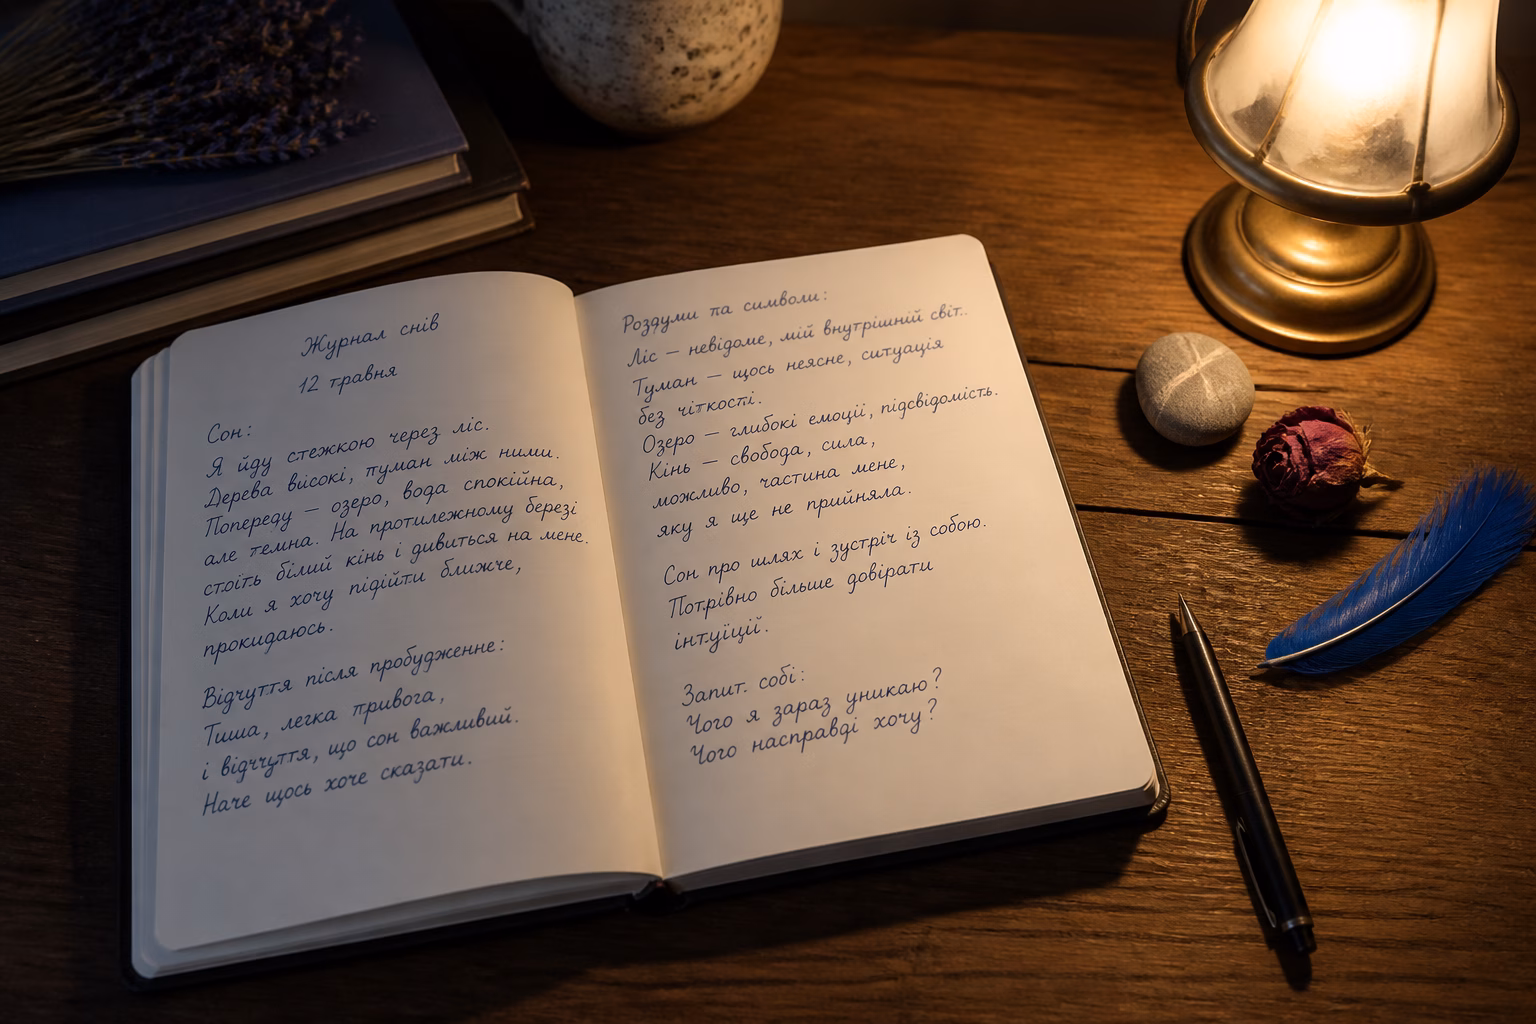 Журнал снів
12 травня
Сон:
Я йду стежкою через ліс.
Дерева високі, туман між ними.
Попереду — озеро, вода спокійна,
але темна. На протилежному березі
стоїть білий кінь і дивиться на мене.
Коли я хочу підійти ближче,
прокидаюсь.
Відчуття після пробудженне:
Тиша, легка привога,
і відччуття, що сон важливий.
Наче щось хоче сказати.
Роздуми па символи:
Ліс — невідоме, мій внутрішній світ..
Туман — щось неясне, ситуація
без чіткості.
Озеро — глибокі емоції, підсвідомість.
Кінь — свобода, сила,
можливо, частина мене,
яку я ще не прийняла.
Сон про шлях і зустріч із собою.
Потрівно більше довірати
інтуїції.
Запит. собі:
Чого я зараз уникаю?
Чого насправді хочу?